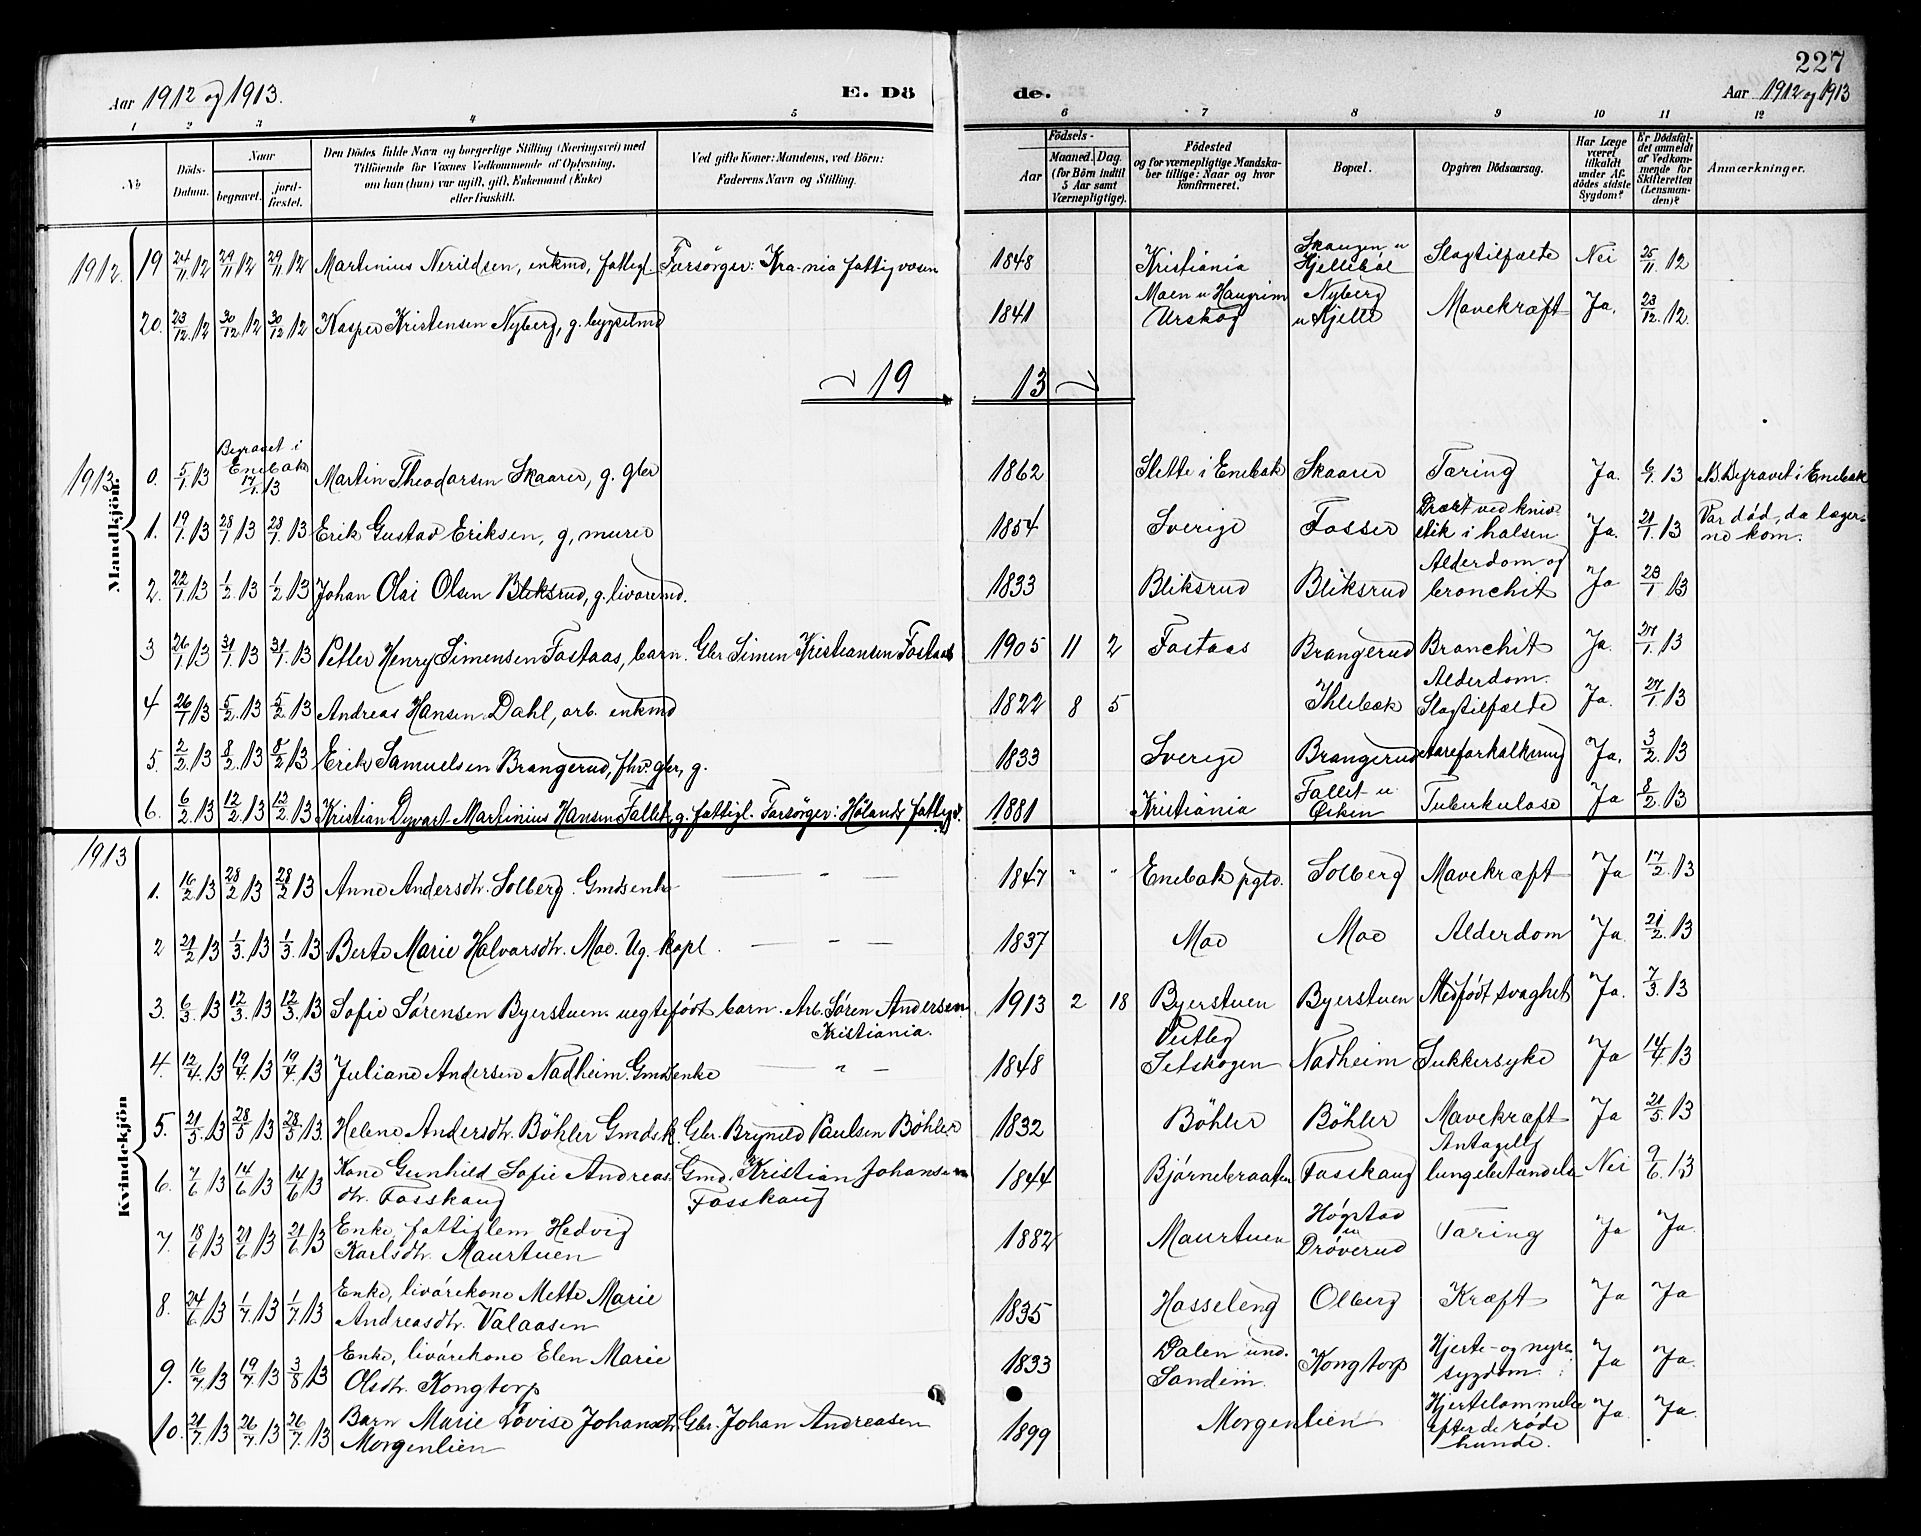 227
Aar 1912 og 1913.
E. Dö
de.
Aar 1912 og 1913
1 2 3 4 5 6 7 8 9 10 11 12
No
Döds-Datum.
Naar
begravet.
jord-fæstet.
Den Dödes fulde Navn og borgerlige Stilling (Næringsvei) med
Tilföiende for Voxnes Vedkommende af Oplysning,
om han (hun) var ugift, gift, Enkemand (Enke)
eller fraskilt.
Ved gifte Koner: Mandens, ved Börn:
Faderens Navn og Stilling.
Födsels-
Aar
Maaned. Dag.
(for Börn indtil
5 Aar samt
Værnepligtige).
Födested
og for værnepligtige Mandska-
ber tillige: Naar og hvor
konfirmeret.
Bopæl.
Opgiven Dödsaarsag.
Har Læge
været
tilkaldt
under Af-
dödes sidste
Sygdom?
Er Dödsfal-
det anmeldt
af Vedkom-
mende for
Skifteretten
(Lensman-
den)?
Anmærkninger.
1912. 19 24/11 12 29/11 12 29/11 12 Martinius Nerildsen, enkmd, fattigl. Forsörger: Kra-nia fattigvæsen 1848 Kristiania Skaugen u Hjellebøl Slagtilfælde Nei 25/11 12
20. 23/12 12 30/12 12 30/12 12 Kasper Kristensen Nyberg, g. bygselmd 1841 Moen u Haugrim Urskog Nyberg u Hjelle Mavekræft Ja. 23/12 12.
19 13
Mandkjön.
1913. 0. 5/1 13 Begravet i Enebak 17/1 13 Martin Theodorsen Skaarer, g. gbr 1862 Slette i Enebak Skaarer Tæring Ja. 6/1 13 N.B. Begravet i Enebak
1. 19/1 13 28/1 13 28/1 13 Erik Gustav Eriksen, g, murer 1854 Sverige Fosser Dræbt ved kniv-stik i halsen Ja. 21/1 13 Var död, da læger-ne kom.
2. 22/1 13 1/2 13 1/2 13 Johan Olai Olsen Bliksrud, g. livøremd. 1833 Bliksrud Bliksrud Alderdom og bronchit Ja 23/1 13
3 26/1 13 31/1 13 31/1 13 Petter Henry Simensen Fostaas, barn. Gbr Simen Kristiansen Fostaas 1905 11 2 Fostaas Brangerud Bronchit Ja. 27/1 13
4 26/1 13 5/2 13 5/2 13 Andreas Hansen Dahl, arb. enkmd 1822 8 5 Ihlebæk Alderdom. Slagtilfælde Ja. 27/1 13
5. 2/2 13 8/2 13 8/2 13 Erik Samuelsen Brangerud, fhv. gbr, g. 1833 Sverige Brangerud Aareforkalkning Ja. 3/2 13
6. 6/2 13 12/2 13 12/2 13 Kristian Dyvart Martinius Hansen Fallet, g. fattigl. Forsörger: Hölands fattigv. 1881 Kristiania Fallet u. Tuberkulose Ja 8/2 13
Kvindekjön
1913 1. 16/2 13 28/2 13 28/2 13 Anne Andersdtr. Solberg. Gmdsenke 1847 " " Enebak pgld. Solberg Mavekræft Ja 17/2 13
2 21/2 13 1/3 13 1/3 13 Berte Marie Halvorsdtr. Moe. Ug. kapl. 1837 Moe Moe Alderdom Ja 21/2 13
3. 6/3 13 12/3 13 12/3 13 Sofie Sörensen Byerstuen. uegtefödt barn. Arb. Sören Andersen Kristiania. 1913 2 18 Byerstuen Byerstuen Medfödt svaghet Ja. 7/3 13
4. 12/4 13 19/4 13 19/4 13 Juliane Andersen Nadheim. Gmdsenke 1848 Setskogen Nadheim Sukkersyke Ja 14/4 13
5. 21/5 13 28/5 13 28/5 13 Helene Andersdtr. Böhler Gmdsk. Gbr. Brynild Paulsen Böhler 1832 Böhler Böhler Mavekræft Ja 21/5 13
6. 7/6 13 14/6 13 14/6 13 Kone Gunhild Sofie Andreas-dtr. Fosskaug Gmd. Kristian Johansen Fosskaug 1844 Bjørnebraaten Fosskaug Antagelig lungebetændelse Nei 9/6 13
7. 18/6 13 21/6 13 21/6 13 Enke, fattiglem Hedvig Karlsdtr. Maurtuen 1882 Maurtuen Högstad u Dröverud Tæring Ja Ja.
8. 24/6 13 1/7 13 1/7 13 Enke, livörekone Mette Marie Andreasdtr. Valaasen 1835 Hasseleng Olberg Kræft Ja Ja
9. 16/7 13 19/7 13 3/8 13 Enke, livörekone Elen Marie Olsdtr. Kongtorp 1833 Dalen und. Sandem. Kongtorp Hjerte- og nyre-sygdom. Ja Ja.
10. 21/7 13 26/7 13 26/7 13 Barn Marie Lovise Johansdtr. Morgenlien Gbr. Johan Andreasen 1899 Morgenlien Hjertelammelse efter de røde hunde. Ja Ja.